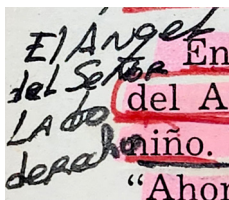 El Angel
del Señor
LAdo
derecho
En
del A
niño.
“Ahor